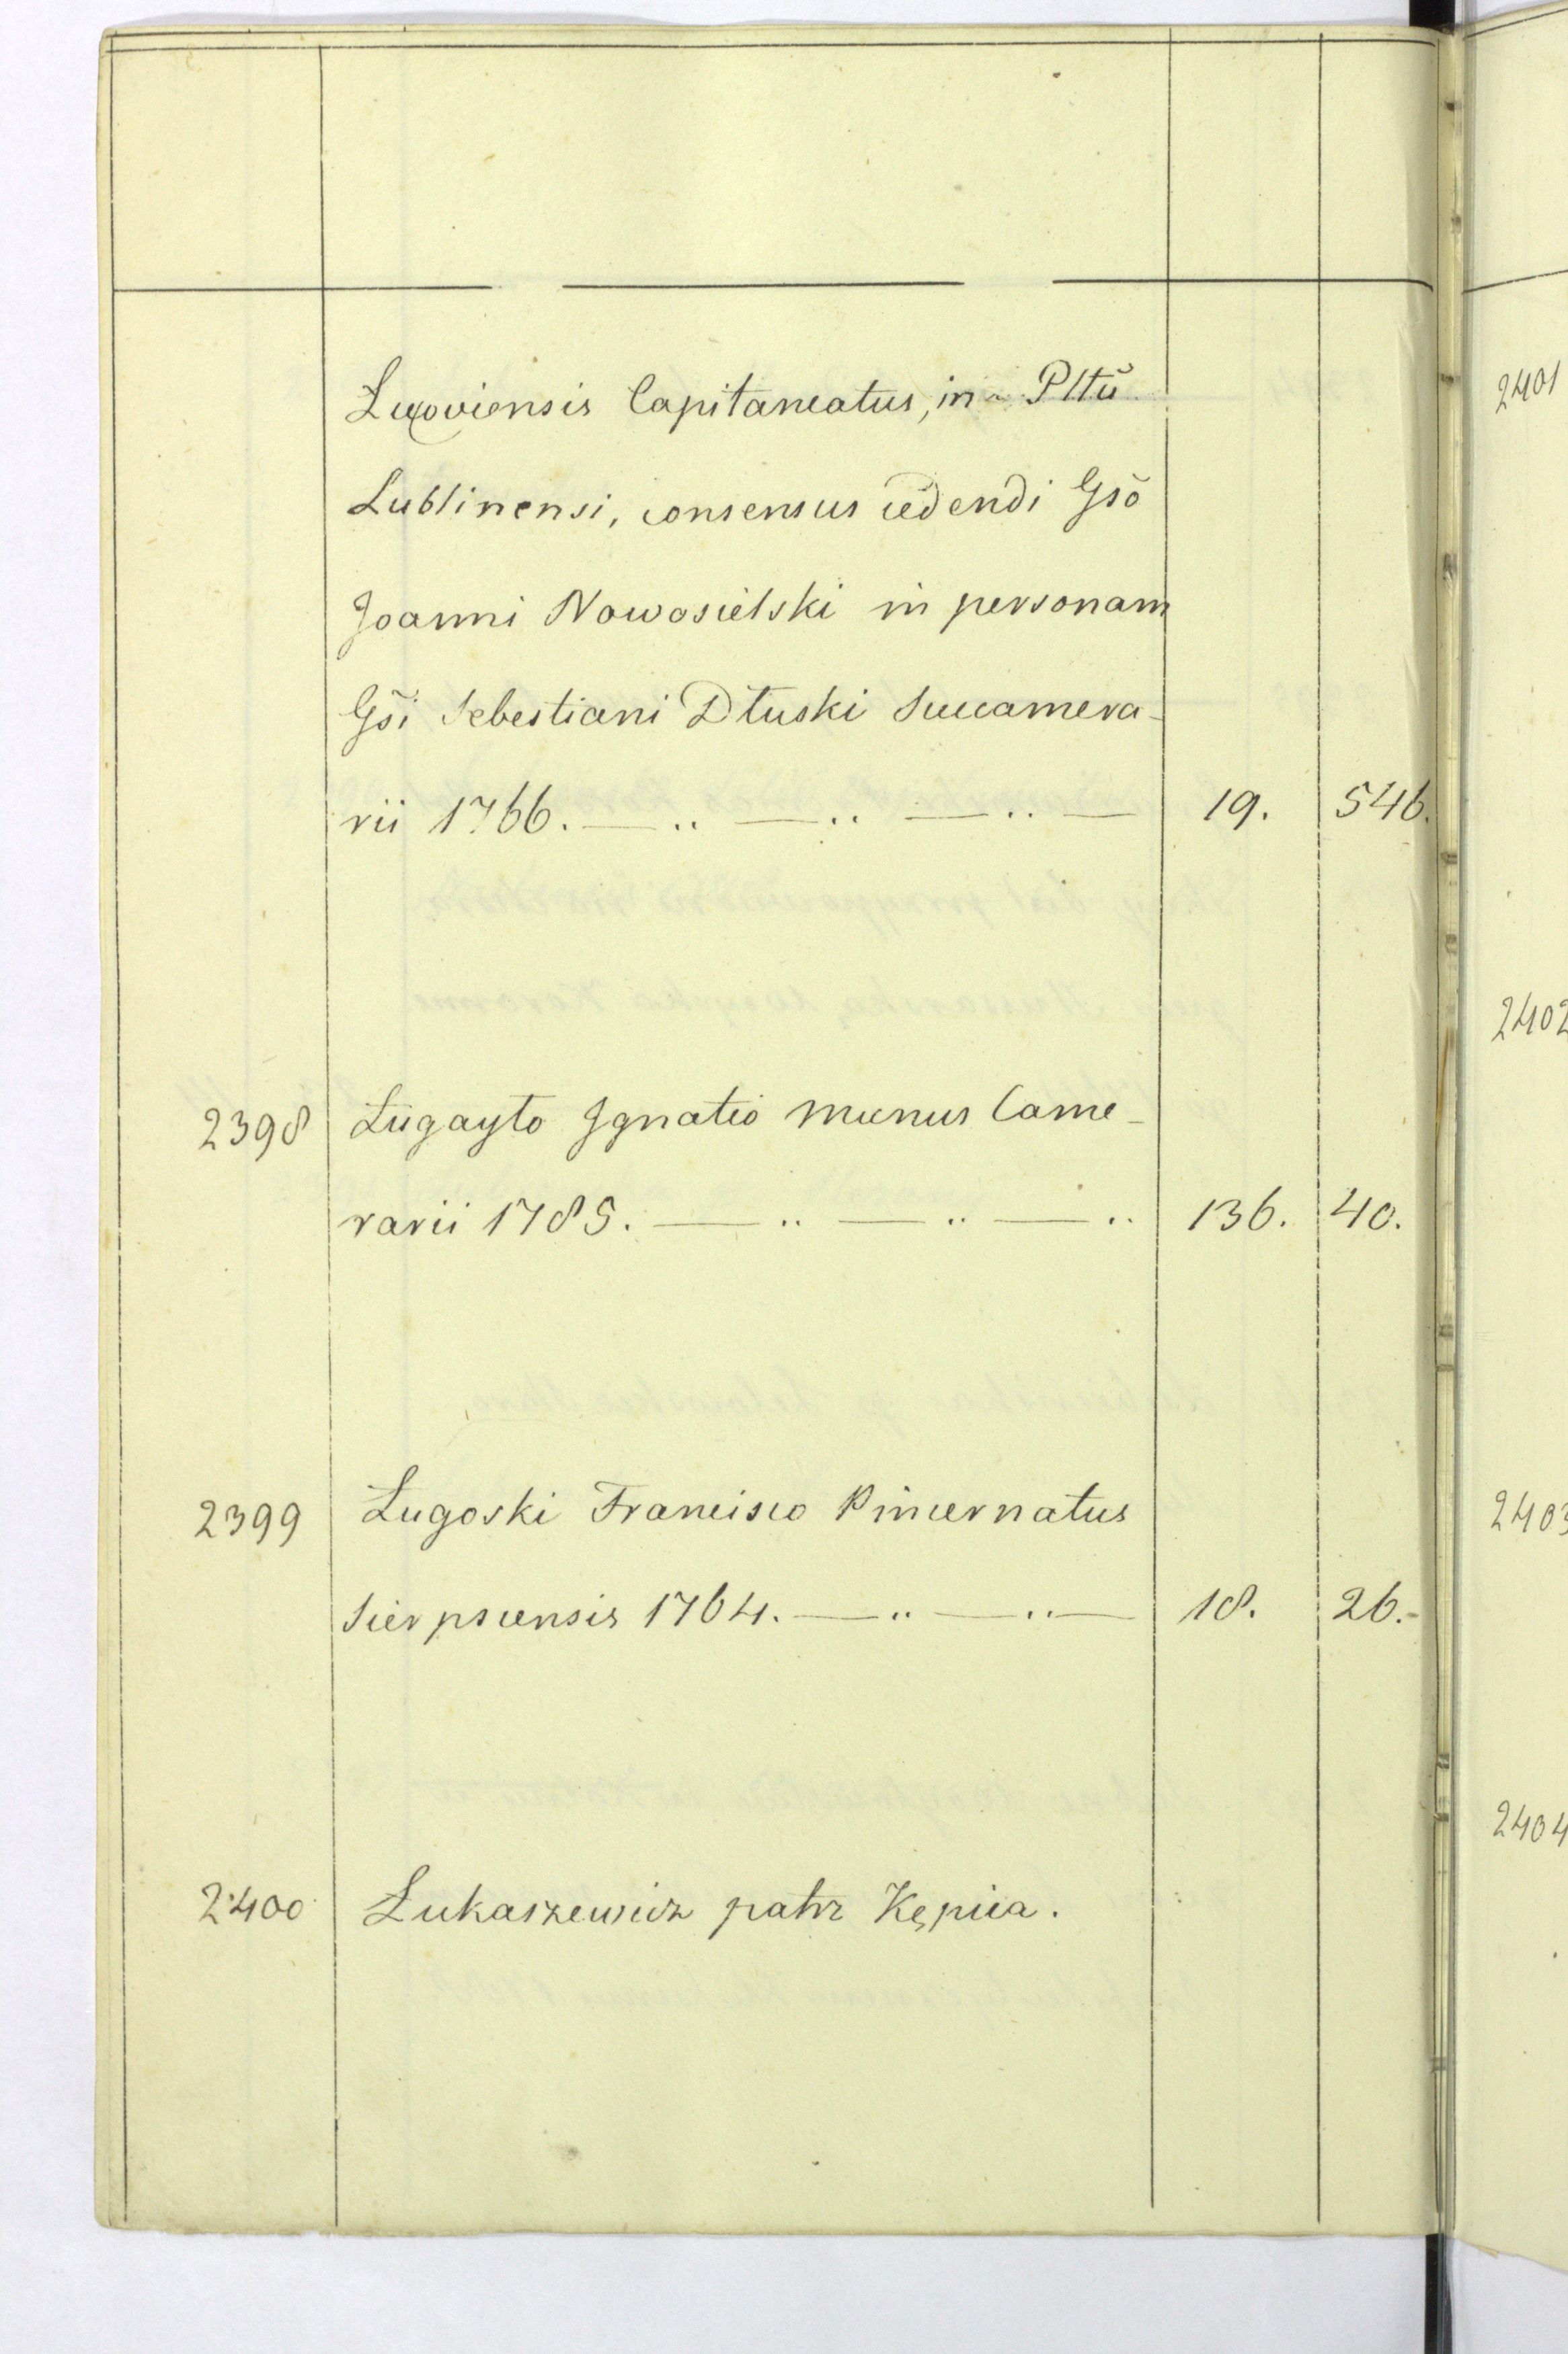 Łuxoviensis Capitaneatus, in Pltū
Lublinensi, consensus cedendi Gsō
Joanni Nowosielski in personam
Gsi Sebestiani Dłuski Succamera-
rii 1766. — .. — .. — .. — 19. 546.
2398 Ługayło Ignatio munus Came-
rarii 1785. — .. — .. — .. 136. 40.
2399 Ługoski Francisco Pincernatus
Sierpscensis 1764. — .. — .. — 18. 26.
2400 Łukaszewicz patrz Kępica.
2401
2402
2403
2404